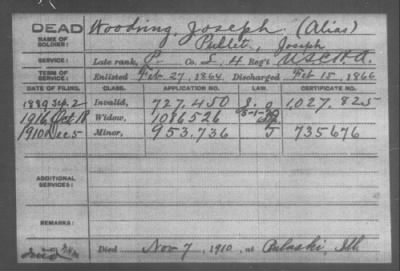 DEAD
NAME OF SOLDIER:
Woodring, Joseph (Alias)
Pullet, Joseph
SERVICE:
Late rank, P Co. , 4 Reg't U.S.C.H.A.
TERM OF SERVICE:
Enlisted Feb 27, 1864 Discharged Feb 15, 1866
DATE OF FILING. CLASS. APPLICATION NO. LAW. CERTIFICATE NO.
1889 Sep. 2 Invalid, 727.450 1.027.825
1916 Oct 18 Widow, 1086526
1910 Dec 5 Minor, 953.736 735676
ADDITIONAL SERVICES:
REMARKS:
Died Nov 7, 1910, at Pulaski, Ill.